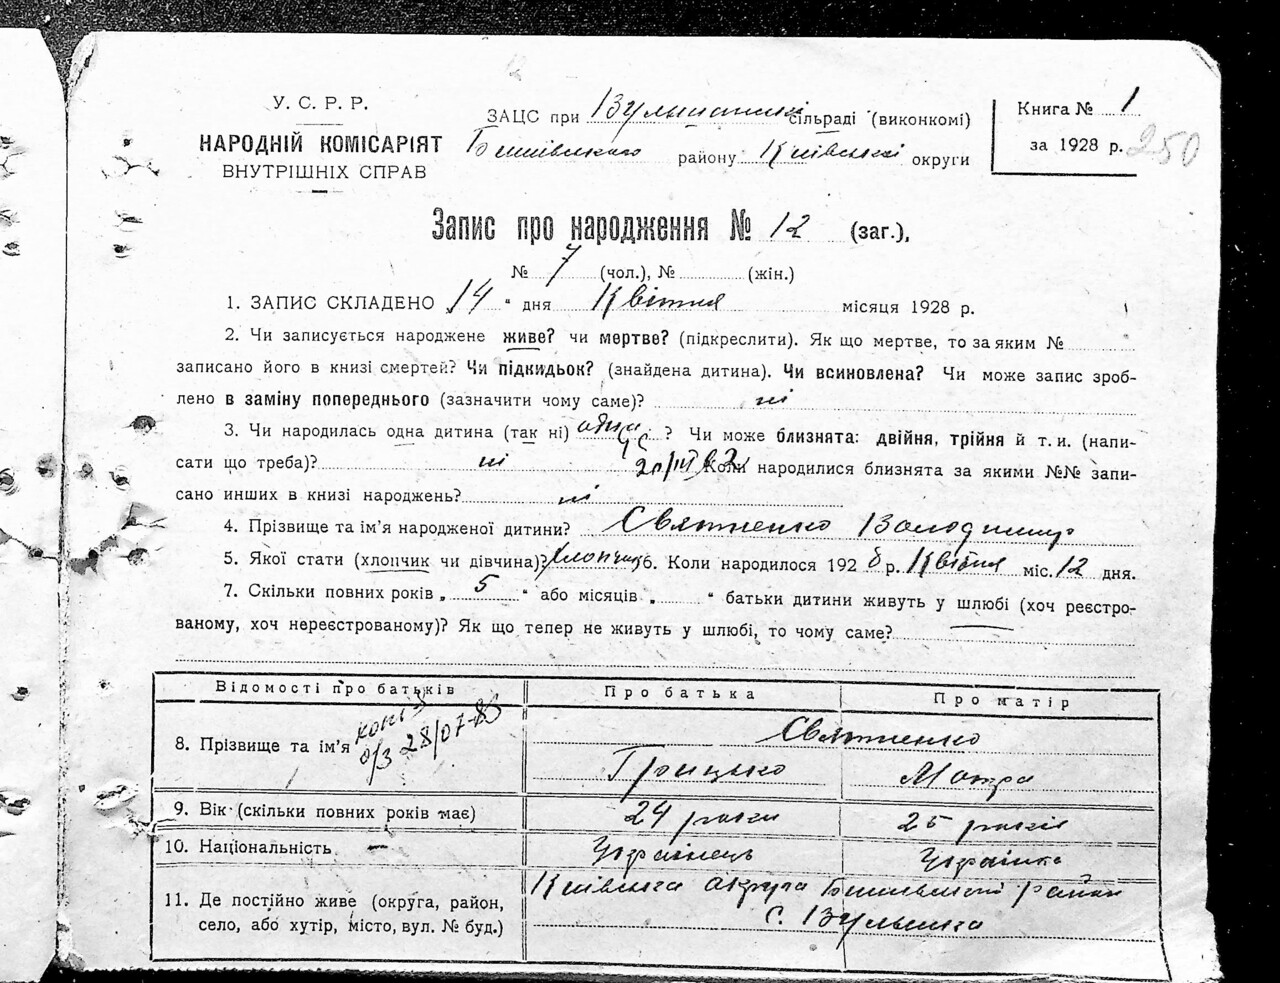 У. С. Р. Р.
НАРОДНІЙ КОМІСАРІЯТ
ВНУТРІШНІХ СПРАВ
ЗАЦС при сільраді (виконкомі)
району Київської округи
Книга № 1
за 1928 р.
250
Запис про народження № 12 (заг.),
№ 7 (чол.), № (жін.)
1. ЗАПИС СКЛАДЕНО 14 " дня Квітня місяця 1928 р.
2. Чи записується народжене живе? чи мертве? (підкреслити). Як що мертве, то за яким №
записано його в книзі смертей? Чи підкидьок? (знайдена дитина). Чи всиновлена? Чи може запис зроб-
лено в заміну попереднього (зазначити чому саме)? ні
3. Чи народилась одна дитина (так ні) одна ? Чи може близнята: двійня, трійня й т. и. (напи-
сати що треба)? ні Коли народилися близнята за якими №№ запи-
сано инших в книзі народжень? ні
4. Прізвище та ім'я народженої дитини? Святненко Володимир
5. Якої стати (хлопчик чи дівчина)? хлопчик 6. Коли народилося 1928 р. Квітня міс. 12 дня.
7. Скільки повних років „ 5 " або місяців „ " батьки дитини живуть у шлюбі (хоч реєстро-
ваному, хоч нереєстрованому)? Як що тепер не живуть у шлюбі, то чому саме?
Відомості про батьків Про батька Про матір
копія
28/07-85
8. Прізвище та ім'я Святненко
Грицько Мотря
9. Вік (скільки повних років має) 24 роки 25 років
10. Національність Українець Українка
11. Де постійно живе (округа, район,
село, або хутір, місто, вул. № буд.)
Київська округа район
с.